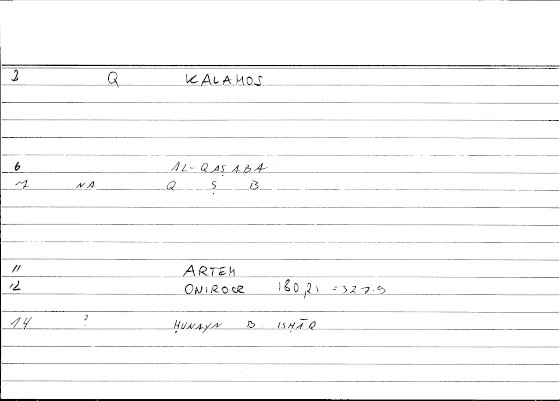 3 Q KALAMOS
6 AL-QAṢABA
7 NA Q Ṣ B
11 ARTEM
12 ONIROCR 180,21 = 327.9
14 ? ḤUNAYN B. ISḤĀQ